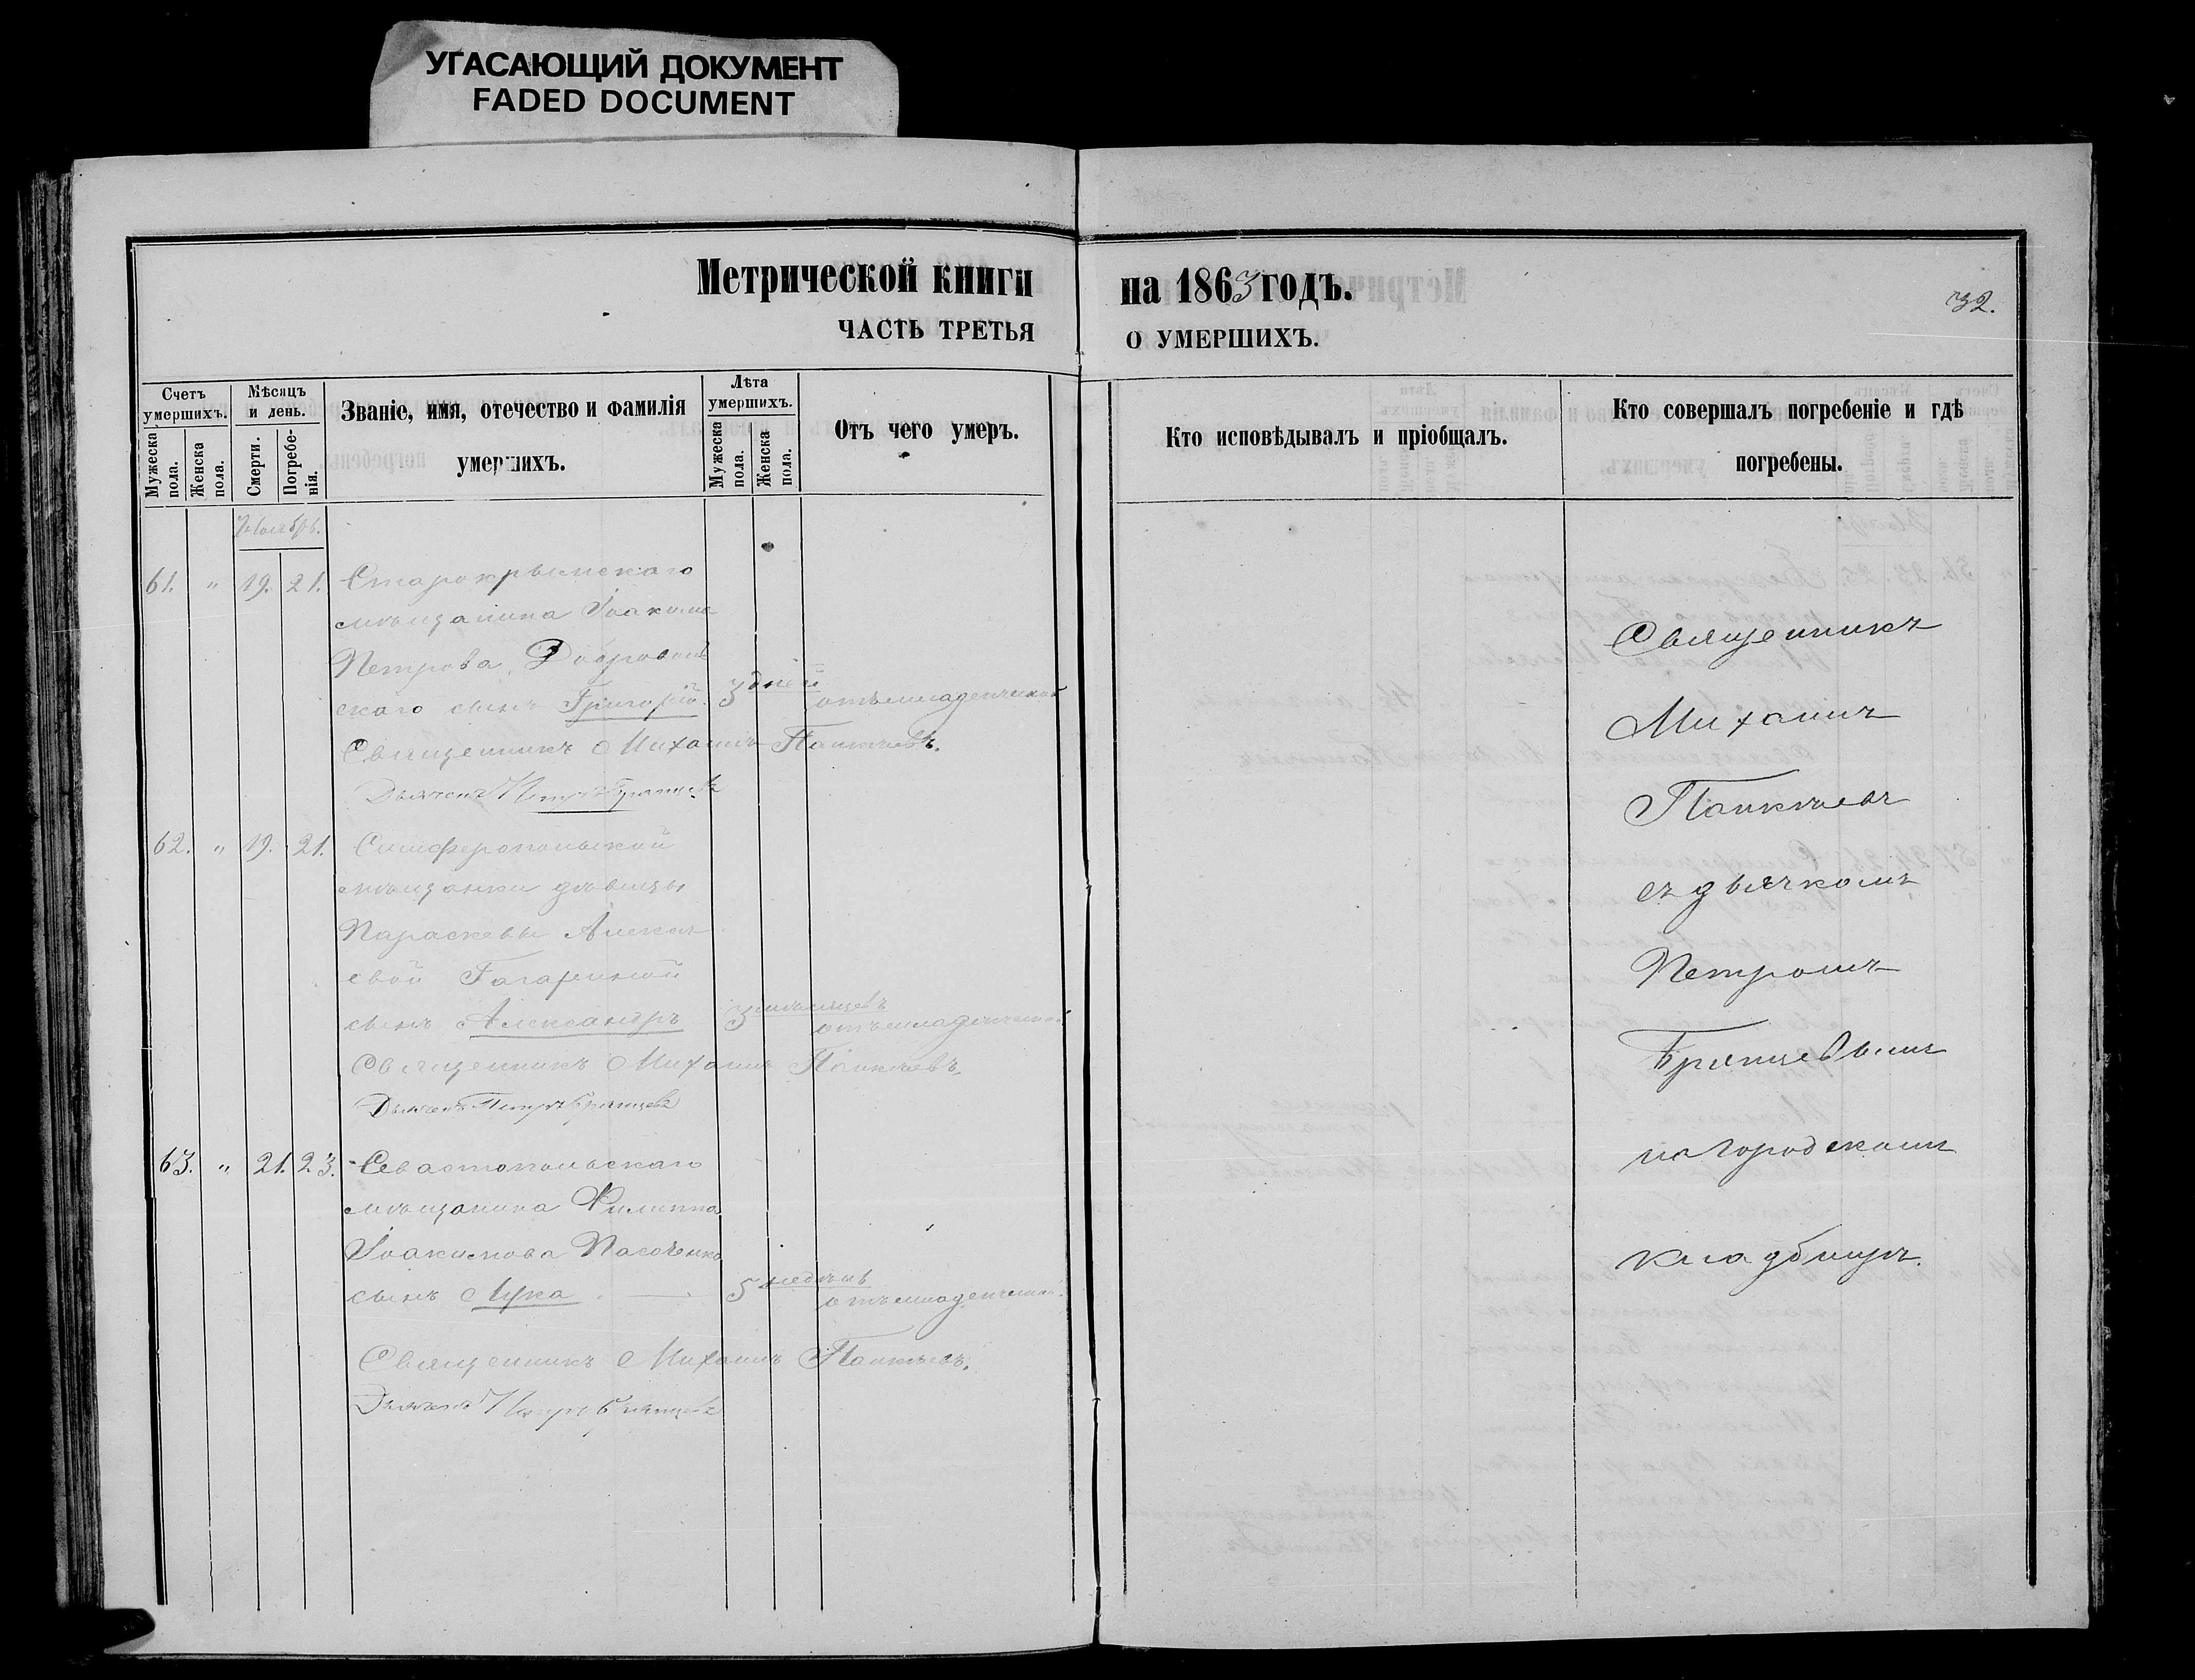 УГАСАЮЩИЙ ДОКУМЕНТ
FADED DOCUMENT
Метрической книги
на 1863 годъ.
32.
ЧАСТЬ ТРЕТЬЯ
О УМЕРШИХЪ.
Счетъ умершихъ.
Мѣсяцъ и день.
Званіе, имя, отечество и фамилія умершихъ.
Лѣта умершихъ.
Отъ чего умеръ.
Кто исповѣдывалъ и пріобщалъ.
Кто совершалъ погребеніе и гдѣ погребены.
Мужеска пола.
Женска пола.
Смерти.
Погребенія.
Мужеска пола.
Женска пола.
Ноябрь.
61. " 19. 21. Старокрымскаго
мѣщанина Іоакима
Петрова Добровольскаго
сынъ Григорій. 3 дней отъ младенческой
Священникъ Михаилъ Панкѣевъ.
Дьячекъ Петръ Брянцевъ
62. " 19. 21. Симферопольской
мѣщанки дѣвицы
Параскевы Алексѣ
евой Гагариной
сынъ Александръ 3 мѣсяцевъ отъ младенческой
Священникъ Михаилъ Панкѣевъ.
Дьячекъ Петръ Брянцевъ
63. " 21. 23. Севастопольскаго
мѣщанина Филиппа
Іоакимова Пасоченка
сынъ Лука 5 недѣль отъ младенческой.
Священникъ Михаилъ Панкѣевъ.
Дьячекъ Петръ Брянцевъ
Священникъ
Михаилъ
Панкѣевъ
съ дьячкомъ
Петромъ
Брянцевымъ
на городскомъ
кладбищѣ.